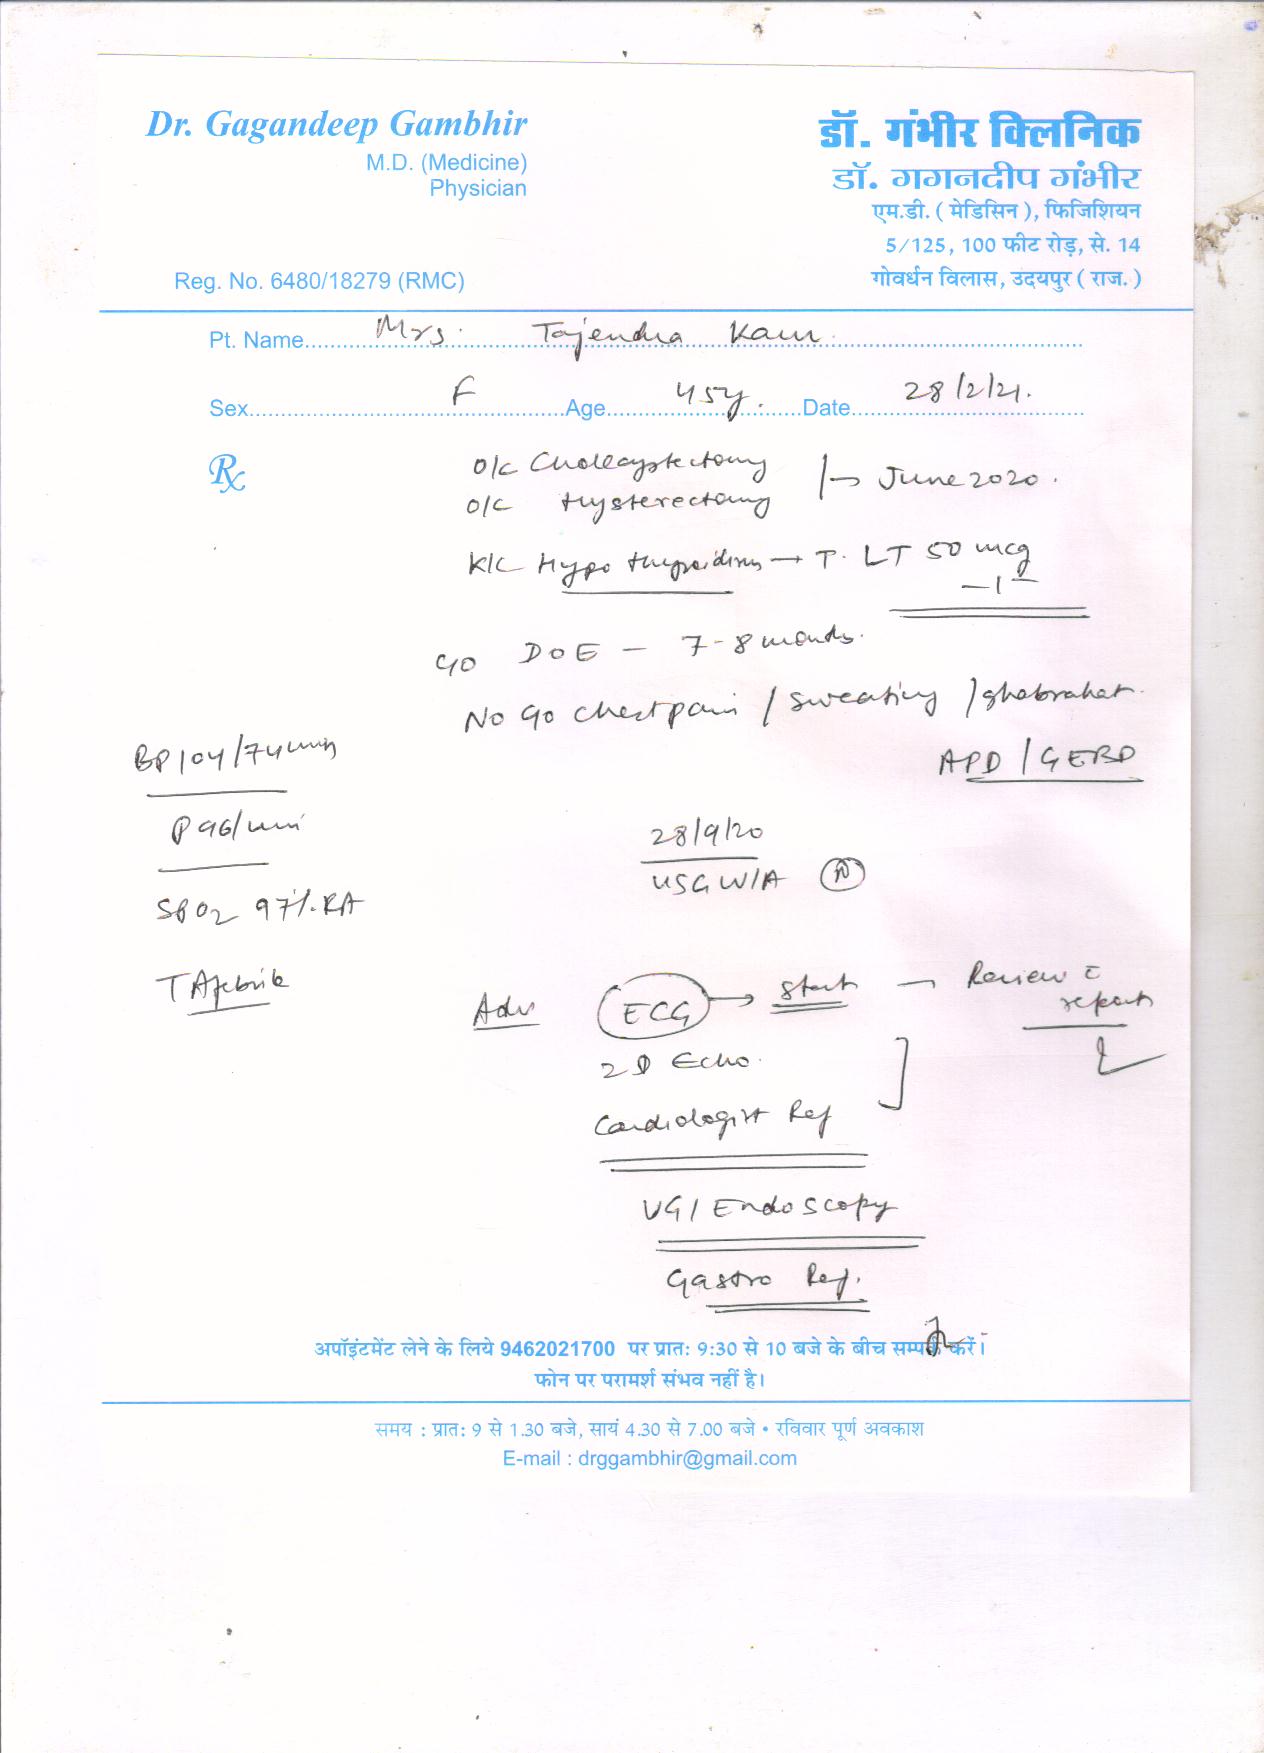 Dr. Gagandeep Gambhir
M.D. (Medicine)
Physician
Reg. No. 6480/18279 (RMC)
डॉ. गंभीर क्लिनिक
डॉ. गगनदीप गंभीर
एम.डी. ( मेडिसिन ), फिजिशियन
5/125, 100 फीट रोड़, से. 14
गोवर्धन विलास, उदयपुर ( राज. )
Pt. Name Mrs. Tajendra Kaur
Sex F Age 45y. Date 28/2/21.
Rx
O/C Cholecystectomy
O/C Hysterectomy → June 2020.
K/C Hypothyroidism → T. LT 50 mcg
—1—
C/O DOE — 7-8 months.
No C/O chest pain / sweating / ghabrahat.
BP 104/74 mmHg
APD / GERD
P 96/min
28/9/20
USG W/A (N)
SPO2 97%. RA
T Afebrile
Adv ECG → Stat — Review c̄ reports
2D Echo.
Cardiologist Ref
UGI Endoscopy
Gastro Ref.
अपॉइंटमेंट लेने के लिये 9462021700 पर प्रातः 9:30 से 10 बजे के बीच सम्पर्क करें।
फोन पर परामर्श संभव नहीं है।
समय : प्रातः 9 से 1.30 बजे, सायं 4.30 से 7.00 बजे • रविवार पूर्ण अवकाश
E-mail : drggambhir@gmail.com